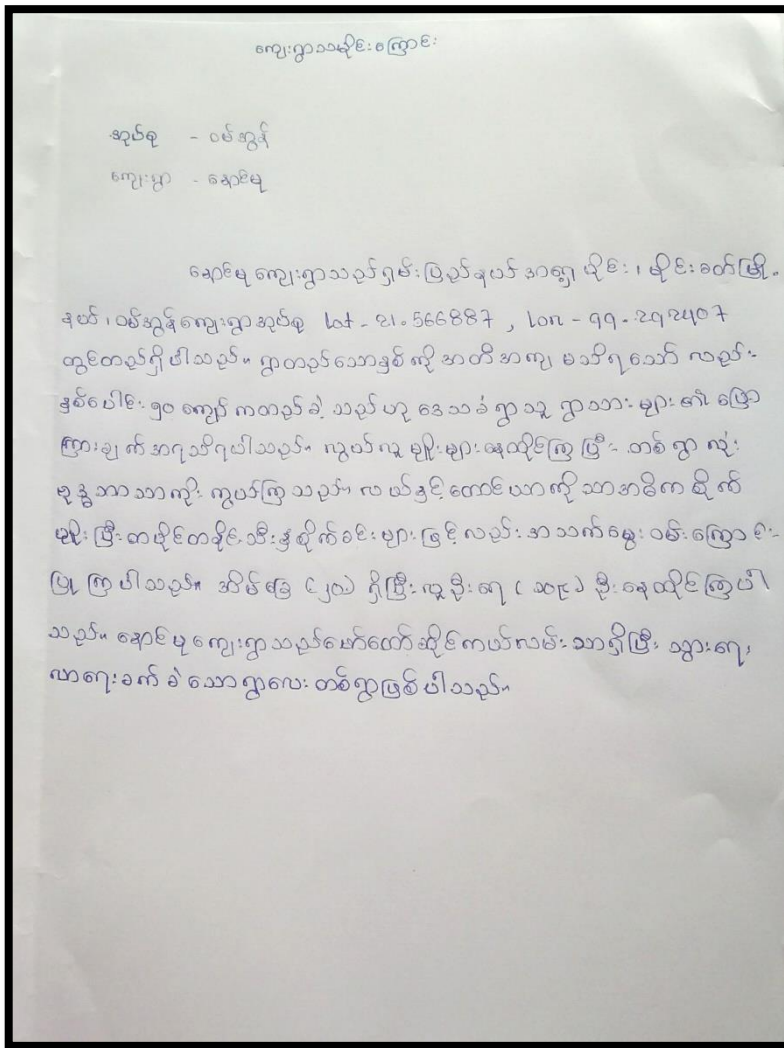 ကျေးရွာသမိုင်းကြောင်း
အုပ်စု - ဝမ်အွန်
ကျေးရွာ - နောင်မု
နောင်မု ကျေးရွာသည် ရှမ်းပြည်နယ် အရှေ့ပိုင်း၊ မိုင်းခတ်မြို့-
နယ်၊ ဝမ်အွန်ကျေးရွာအုပ်စု Lat - 21.566887 , Lon - 99.292407
တွင်တည်ရှိပါသည်။ ရွာတည်သောနှစ်ကို အတိအကျ မသိရသော် လည်း
နှစ်ပေါင်း ၅၀ ကျော် ကတည်ခဲ့ သည်ဟု ဒေသခံရွာသူ ရွာသား များ ၏ ပြော
ကြားချက်အရသိရပါသည်။ လွယ်လူမျိုးများနေထိုင်ကြပြီး တစ်ရွာလုံး
ဗုဒ္ဓဘာသာကိုး ကွယ်ကြသည်။ လယ်နှင့်တောင်ယာကိုသာအဓိကစိုက်
မျိုးပြီးတပိုင်တနိုင် သီးနှံစိုက်ခင်းများဖြင့်လည်း အသက်မွေးဝမ်းကြောင်း-
ပြုကြပါသည်။ အိမ်ခြေ (၂၀) ရှိပြီးလူဦးရေ ( ၁၀၉ ) ဦးနေထိုင်ကြပါ
သည်။ နောင်မုကျေးရွာသည်မော်တော်ဆိုင်ကယ်လမ်းသာရှိပြီး သွားရေး
လာရေးခက်ခဲသောရွာလေးတစ်ရွာဖြစ်ပါသည်။